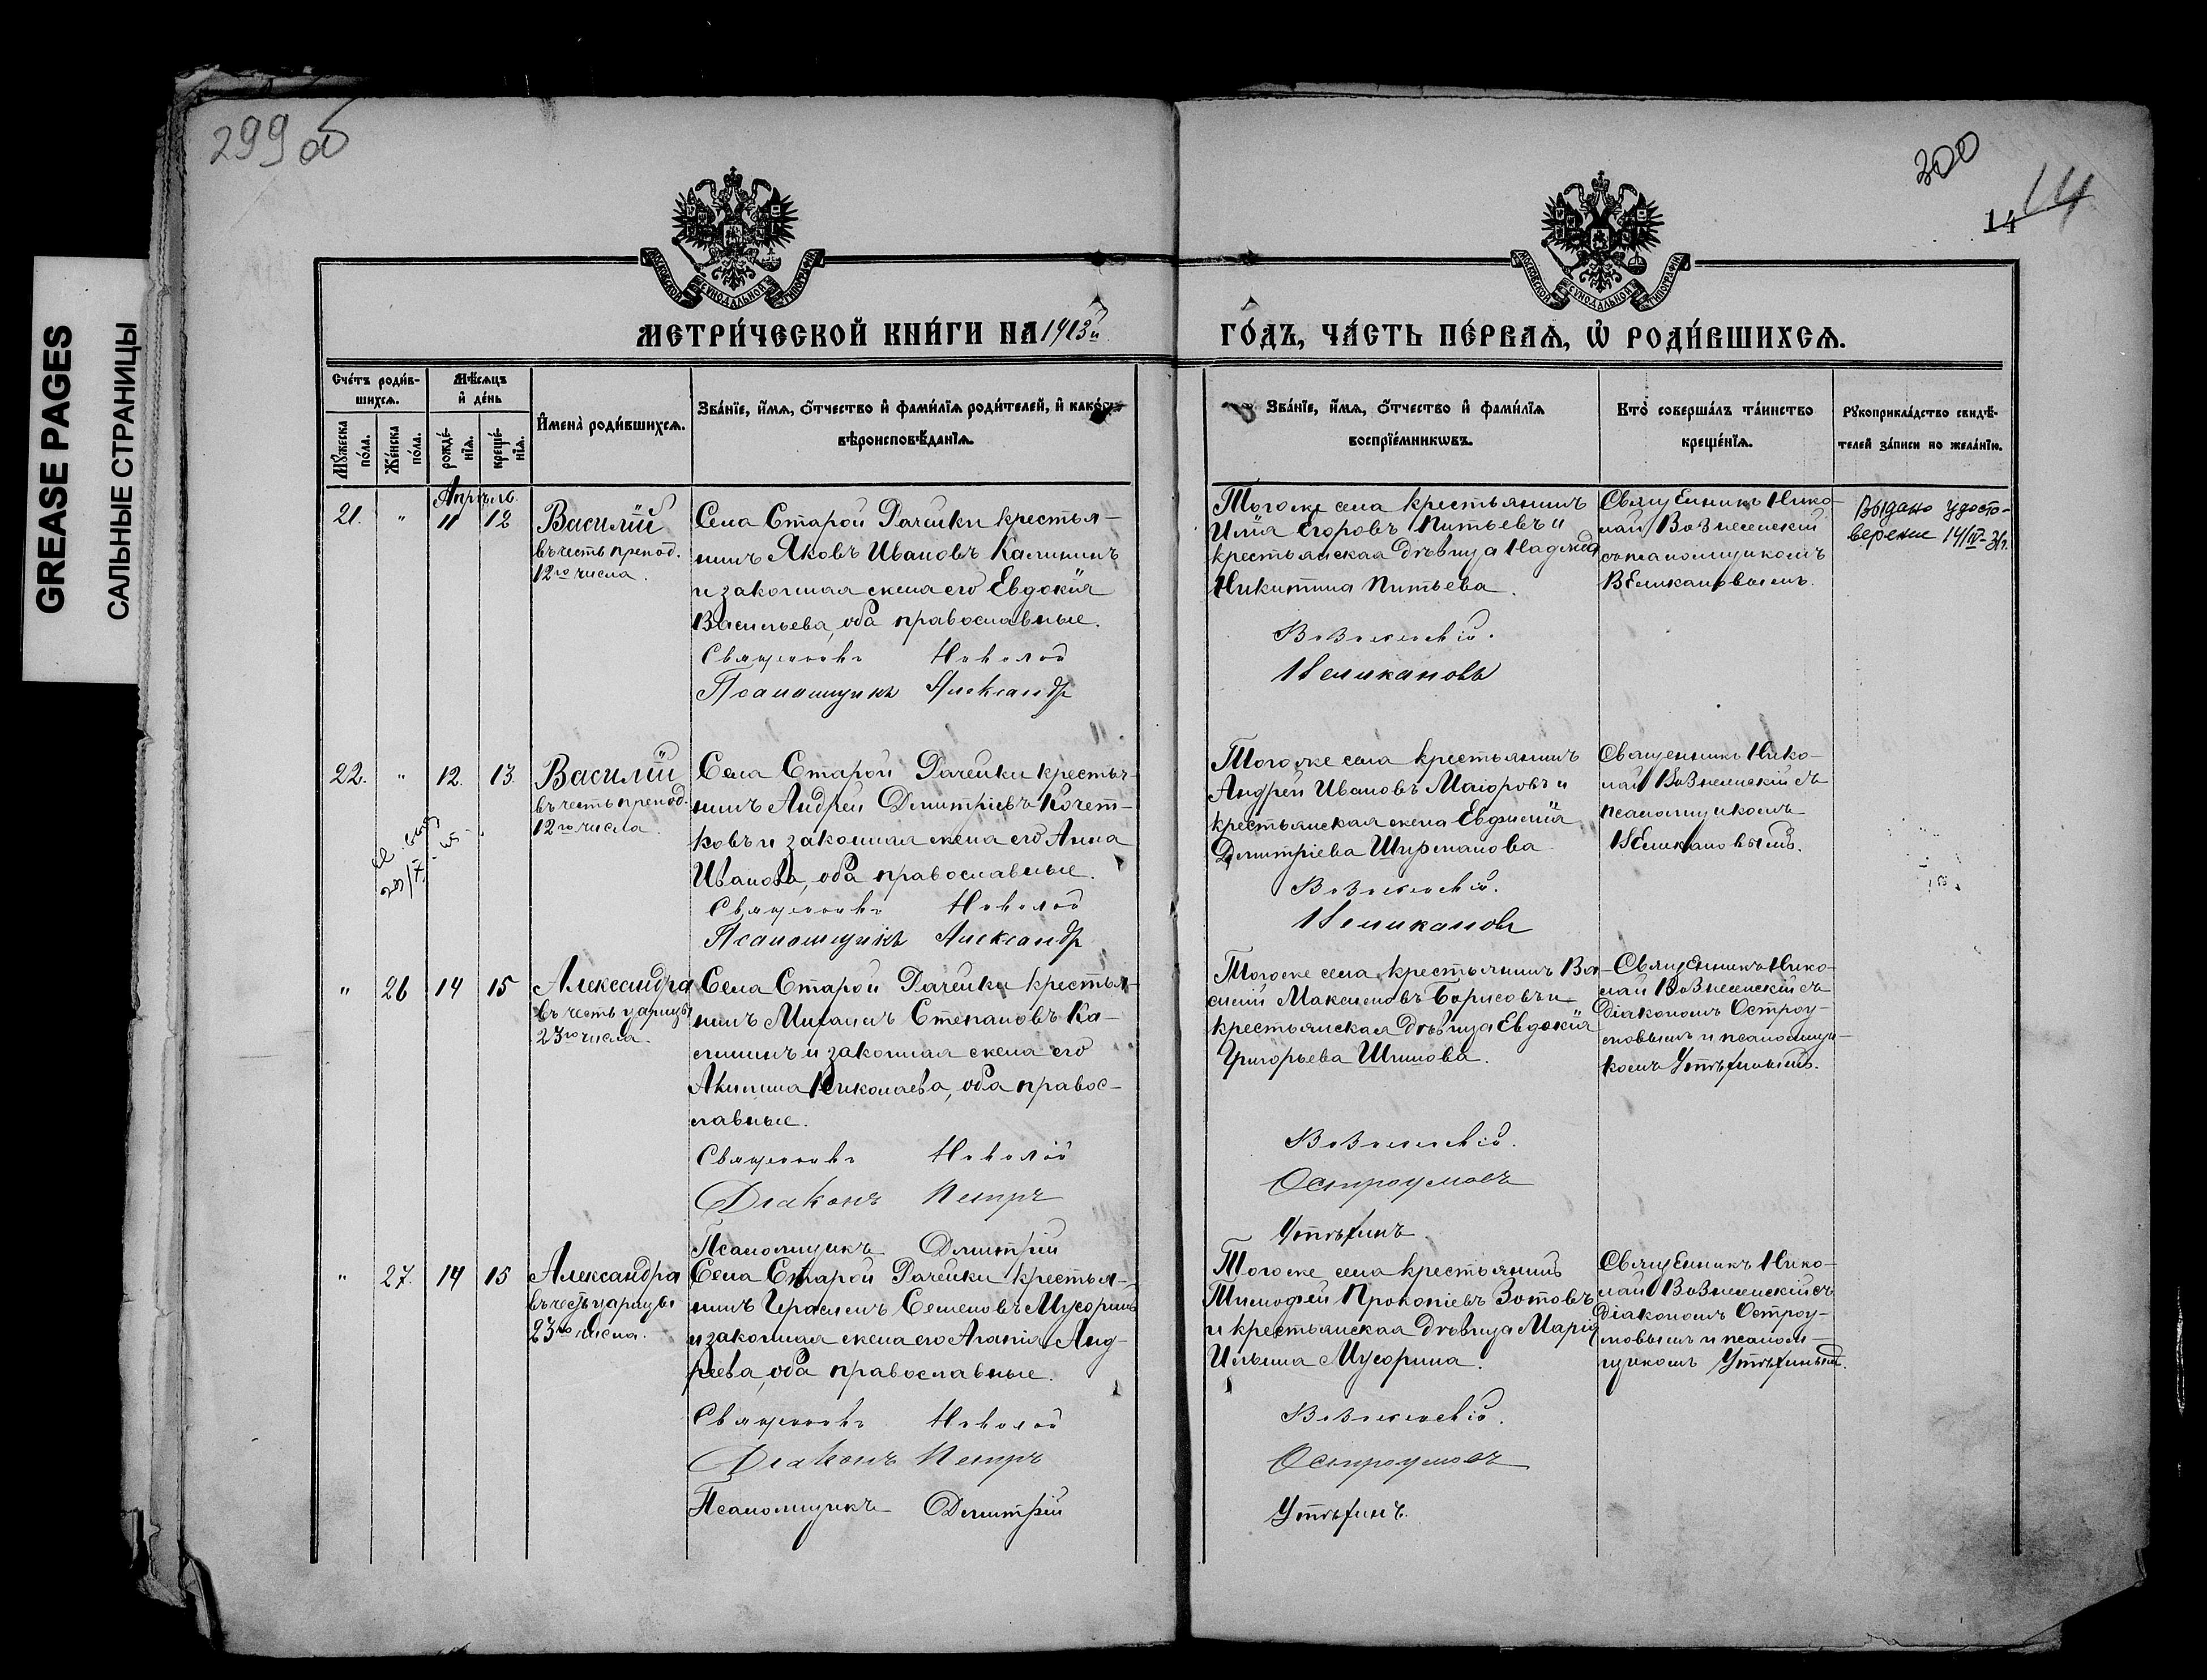 299 об
300
14
14
GREASE PAGES
САЛЬНЫЕ СТРАНИЦЫ
МОСКОВСКОЙ СѴНОДАЛЬНОЙ ТИПОГРАФІИ
МОСКОВСКОЙ СѴНОДАЛЬНОЙ ТИПОГРАФІИ
МЕТРИ́ЧЕСКОЙ КНИ́ГИ НА 1913й
ГО́ДЪ, ЧА́СТЬ ПЕ́РВАѦ, Ѽ РОДИ́ВШИХСѦ.
Сче́тъ роди́в-
шихсѧ.
Мꙋ́жеска по́ла.
Же́нска по́ла.
Мѣ́сѧцъ
и҆ де́нь
рожде́-
нїѧ.
креще́-
нїѧ.
И҆мена̀ роди́вшихсѧ.
Зва́нїе, и҆́мѧ, ѻ҆́тчество и҆ фами́лїѧ роди́телей, и҆ како́гѡ
вѣроисповѣ́данїѧ.
Зва́нїе, и҆́мѧ, ѻ҆́тчество и҆ фами́лїѧ
воспрїе́мникѡвъ.
Кто̀ соверша́лъ та́инство
креще́нїѧ.
Рꙋкоприкла́дство свидѣ́-
телей за́писи по жела́нїю.
Апрѣль.
21. " 11 12
Василій
въ честь препод.
12го числа.
Села Старой Рачейки крестья-
нинъ Яковъ Ивановъ Калининъ
и законная жена его Евдокія
Васильева, оба православные.
Священникъ Николай
Псаломщикъ Александр
Тогоже села крестьянинъ
Илія Егоровъ Питьевъ и
крестьянская дѣвица Надежда
Никитина Питьева.
Вознесенскій.
Великановъ
Священникъ Нико-
лай Вознесенскій
съ псаломщикомъ
Великановымъ.
Выдано удосто-
верение 14/IV-31г.
22. " 12. 13.
Василій
въ честь препод.
12го числа.
Села Старой Рачейки крестья-
нинъ Андрей Димитріевъ Кочет-
ковъ и законная жена его Анна
Иванова, оба православные.
Священникъ Николай
Псаломщикъ Александр
Тогоже села крестьянинъ
Андрей Ивановъ Маіоровъ и
крестьянская жена Евфимія
Димитріева Ширманова
Вознесенскій.
Великановъ
Священникъ Нико-
лай Вознесенскій съ
псаломщикомъ
Великановымъ.
" 26 14 15
Александра
въ честь царицы
23го числа.
Села Старой Рачейки крестья-
нинъ Михаилъ Степановъ Ка-
лининъ и законная жена его
Акилина Николаева, оба правос-
лавные.
Священникъ Николай
Діаконъ Петръ
Псаломщикъ Димитрій
Тогоже села крестьянинъ Ва-
силій Максимовъ Борисовъ и
крестьянская дѣвица Евдокія
Григорьева Шишова.
Вознесенскій.
Остроумовъ
Утѣхинъ.
Священникъ Нико-
лай Вознесенскій съ
діакономъ Остроу-
мовымъ и псаломщи-
комъ Утѣхинымъ.
" 27. 14 15
Александра
въ честь царицы
23го числа.
Села Старой Рачейки крестья-
нинъ Герасимъ Семеновъ Мусоринъ
и законная жена его Агапія Анд-
реева, оба православные.
Священникъ Николай
Діаконъ Петръ
Псаломщикъ Димитрій
Тогоже села крестьянинъ
Тимофей Прокопіевъ Зотовъ
и крестьянская дѣвица Марія
Ильина Мусорина.
Вознесенскій.
Остроумовъ
Утѣхинъ.
Священникъ Нико-
лай Вознесенскій съ
діакономъ Остроу-
мовымъ и псалом-
щикомъ Утѣхинымъ.